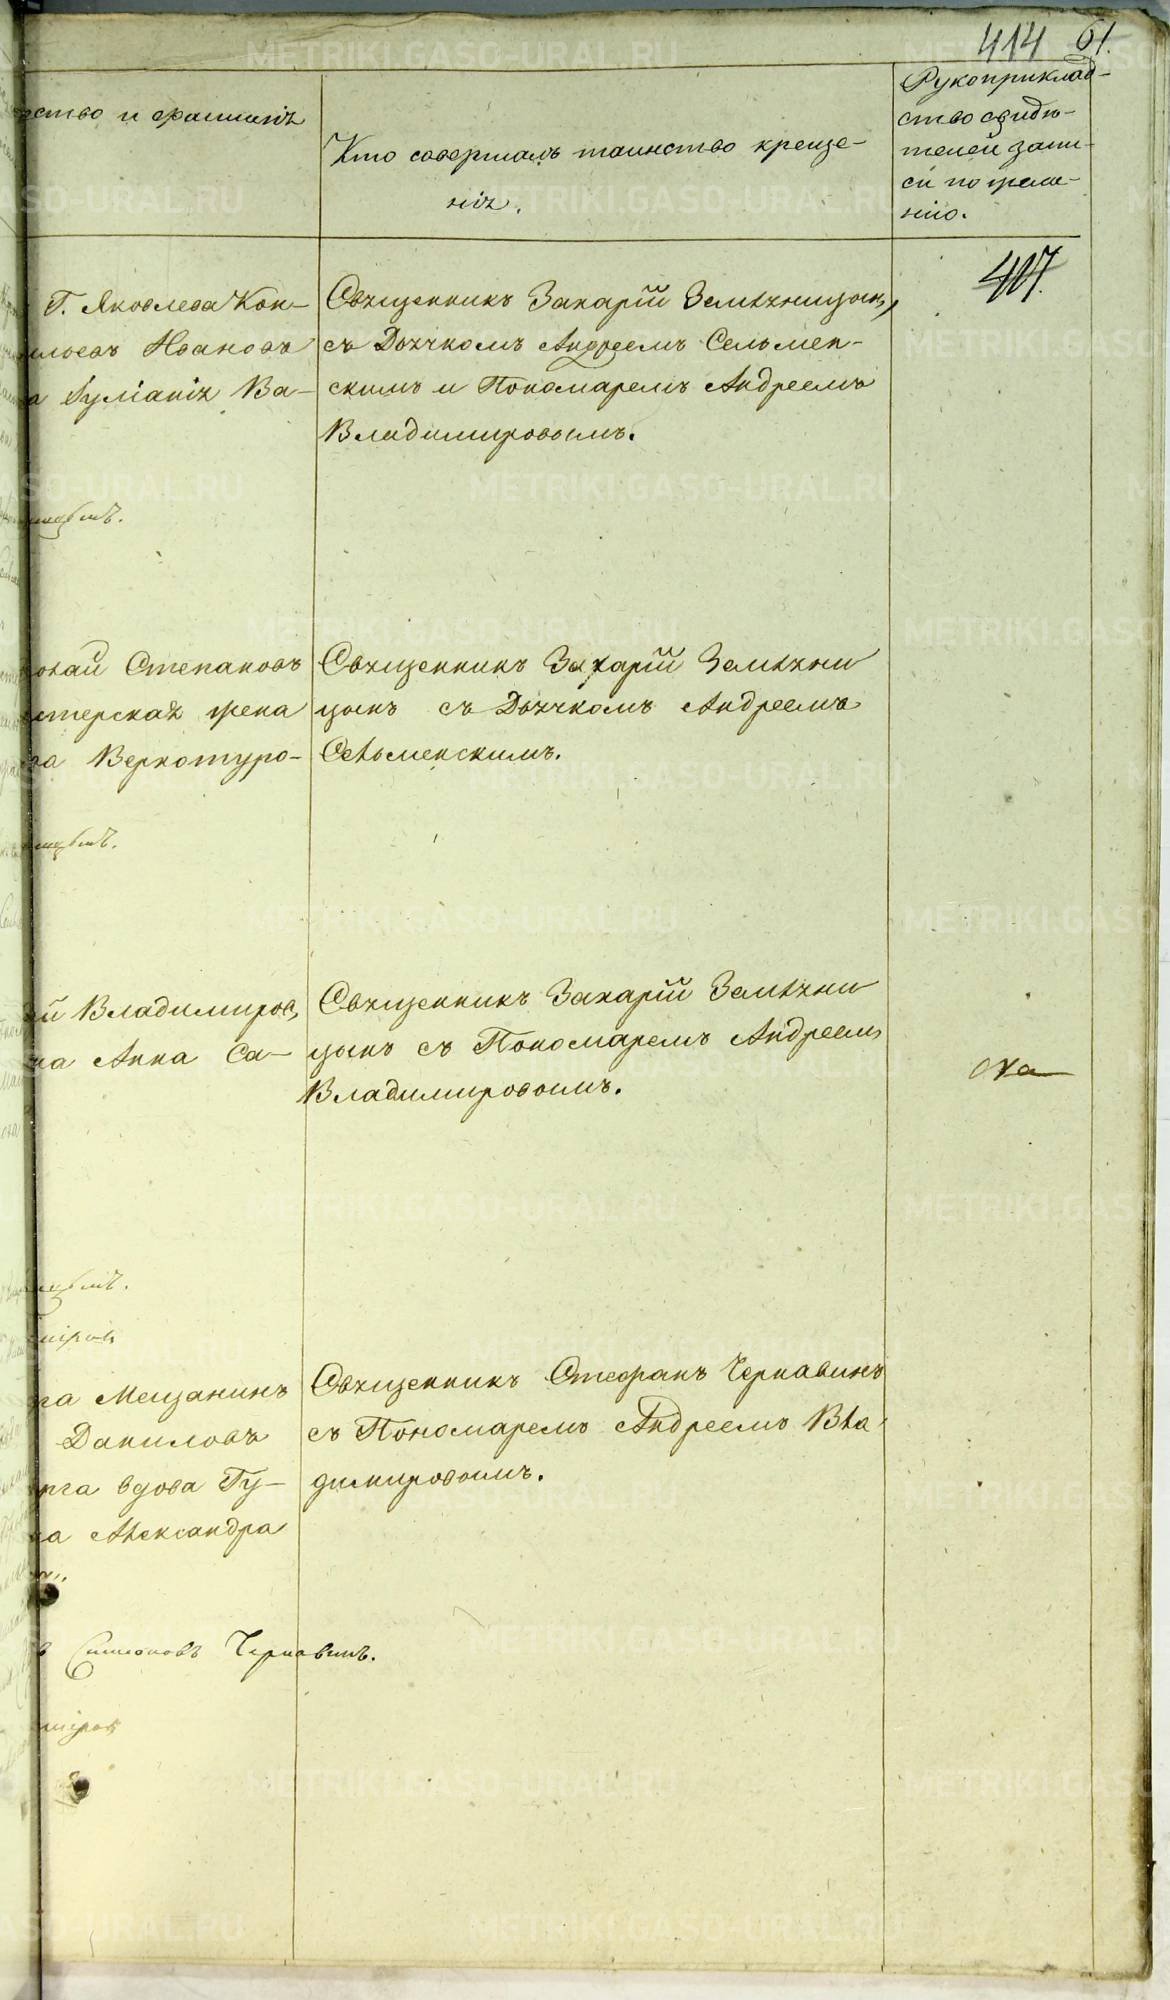 414 61.
ство и фамилія
Кто совершалъ таинство креще-
нія.
Рукоприклад-
ство свидѣ-
телей запи-
си по жела-
нію.
417.
Г. Яковлева Кон-
Ивановъ
Іуліанія Ва-
Священникъ Захарій Земляницынъ,
съ Дьячкомъ Андреемъ Сельмен-
скимъ и Пономаремъ Андреемъ
Владимировымъ.
Степановъ
жена
Верхотуро-
Священникъ Захарій Земляни
цынъ съ Дьячкомъ Андреемъ
Сельменскимъ.
Владимировъ
на Анна Са-
Священникъ Захарій Земляни
цынъ съ Пономаремъ Андреемъ
Владимировымъ.
Мещанинъ
Даниловъ
рга вдова Гу-
на Александра
Священникъ Стефанъ Чернавинъ
съ Пономаремъ Андреемъ Вла-
димировымъ.
Симеоновъ Чернавинъ.
METRIKI.GASO-URAL.RU